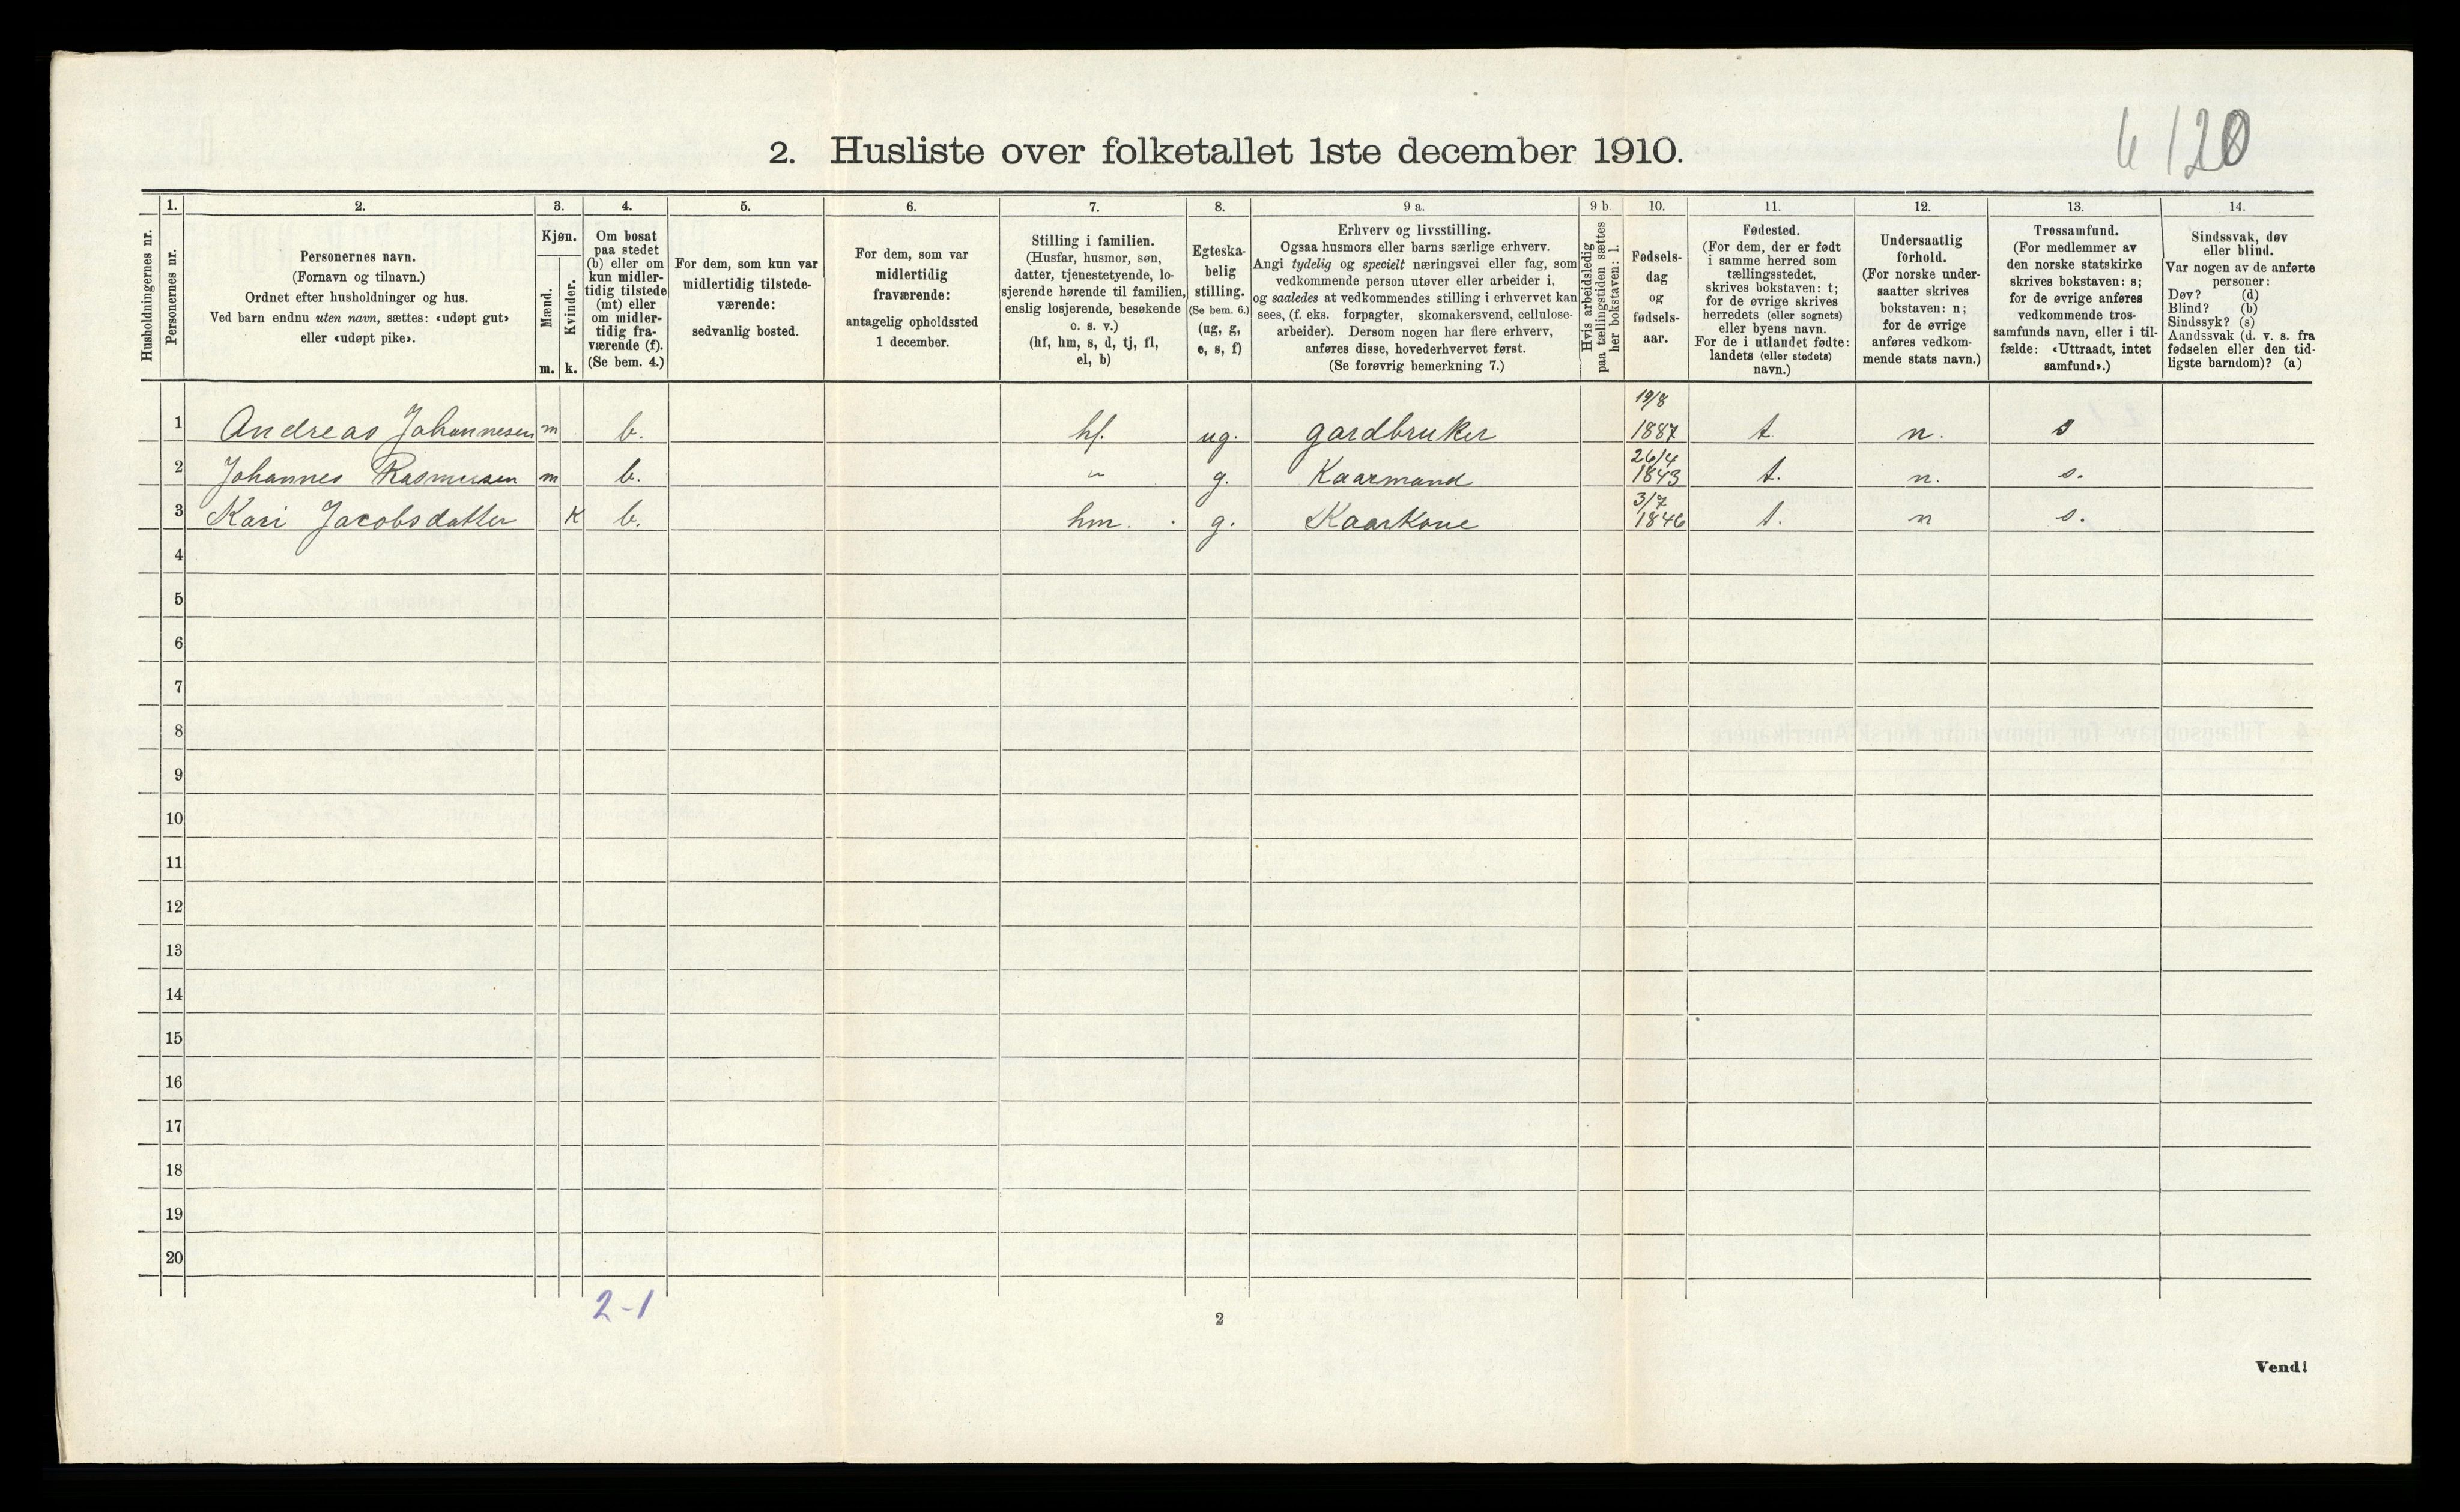 6 120
2. Husliste over folketallet 1ste december 1910.
Husholdningernes nr.
1.
Personernes nr.
2.
Personernes navn.
(Fornavn og tilnavn.)
Ordnet efter husholdninger og hus.
Ved barn endnu uten navn, sættes: «udøpt gut»
eller «udøpt pike».
3.
Kjøn.
Mænd.
Kvinder.
m. k.
4.
Om bosat
paa stedet
(b) eller om
kun midler-
tidig tilstede
(mt) eller
om midler-
tidig fra-
værende (f).
(Se bem. 4.)
5.
For dem, som kun var
midlertidig tilstede-
værende:
sedvanlig bosted.
6.
For dem, som var
midlertidig
fraværende:
antagelig opholdssted
1 december.
7.
Stilling i familien.
(Husfar, husmor, søn,
datter, tjenestetyende, lo-
sjerende hørende til familien,
enslig losjerende, besøkende
o. s. v.)
(hf, hm, s, d, tj, fl,
el, b)
8.
Egteska-
belig
stilling.
(Se bem. 6.)
(ug, g,
e, s, f)
9 a.
Erhverv og livsstilling.
Ogsaa husmors eller barns særlige erhverv.
Angi tydelig og specielt næringsvei eller fag, som
vedkommende person utøver eller arbeider i,
og saaledes at vedkommendes stilling i erhvervet kan
sees, (f. eks. forpagter, skomakersvend, cellulose-
arbeider). Dersom nogen har flere erhverv,
anføres disse, hovederhvervet først.
(Se forøvrig bemerkning 7.)
9 b.
Hvis arbeidsledig
paa tællingstiden sættes
her bokstaven: l.
10.
Fødsels-
dag
og
fødsels-
aar.
11.
Fødested.
(For dem, der er født
i samme herred som
tællingsstedet,
skrives bokstaven: t;
for de øvrige skrives
herredets (eller sognets)
eller byens navn.
For de i utlandet fødte:
landets (eller stedets)
navn.)
12.
Undersaatlig
forhold.
(For norske under-
saatter skrives
bokstaven: n;
for de øvrige
anføres vedkom-
mende stats navn.)
13.
Trossamfund.
(For medlemmer av
den norske statskirke
skrives bokstaven: s;
for de øvrige anføres
vedkommende tros-
samfunds navn, eller i til-
fælde: «Uttraadt, intet
samfund».)
14.
Sindssvak, døv
eller blind.
Var nogen av de anførte
personer:
Døv? (d)
Blind? (b)
Sindssyk? (s)
Aandssvak (d. v. s. fra
fødselen eller den tid-
ligste barndom)? (a)
19/8
1 Andreas Johannesen m b. hf. ug. gardbruker 1887 t n. s
26/4
2 Johannes Rasmussen m b. " g. Kaarmand 1843 t. n. s.
3/7
3 Kari Jacobsdatter K b. hm. g. Kaarkone 1846 t. n s.
4
5
6
7
8
9
10
11
12
13
14
15
16
17
18
19
20
2-1
2
Vend!